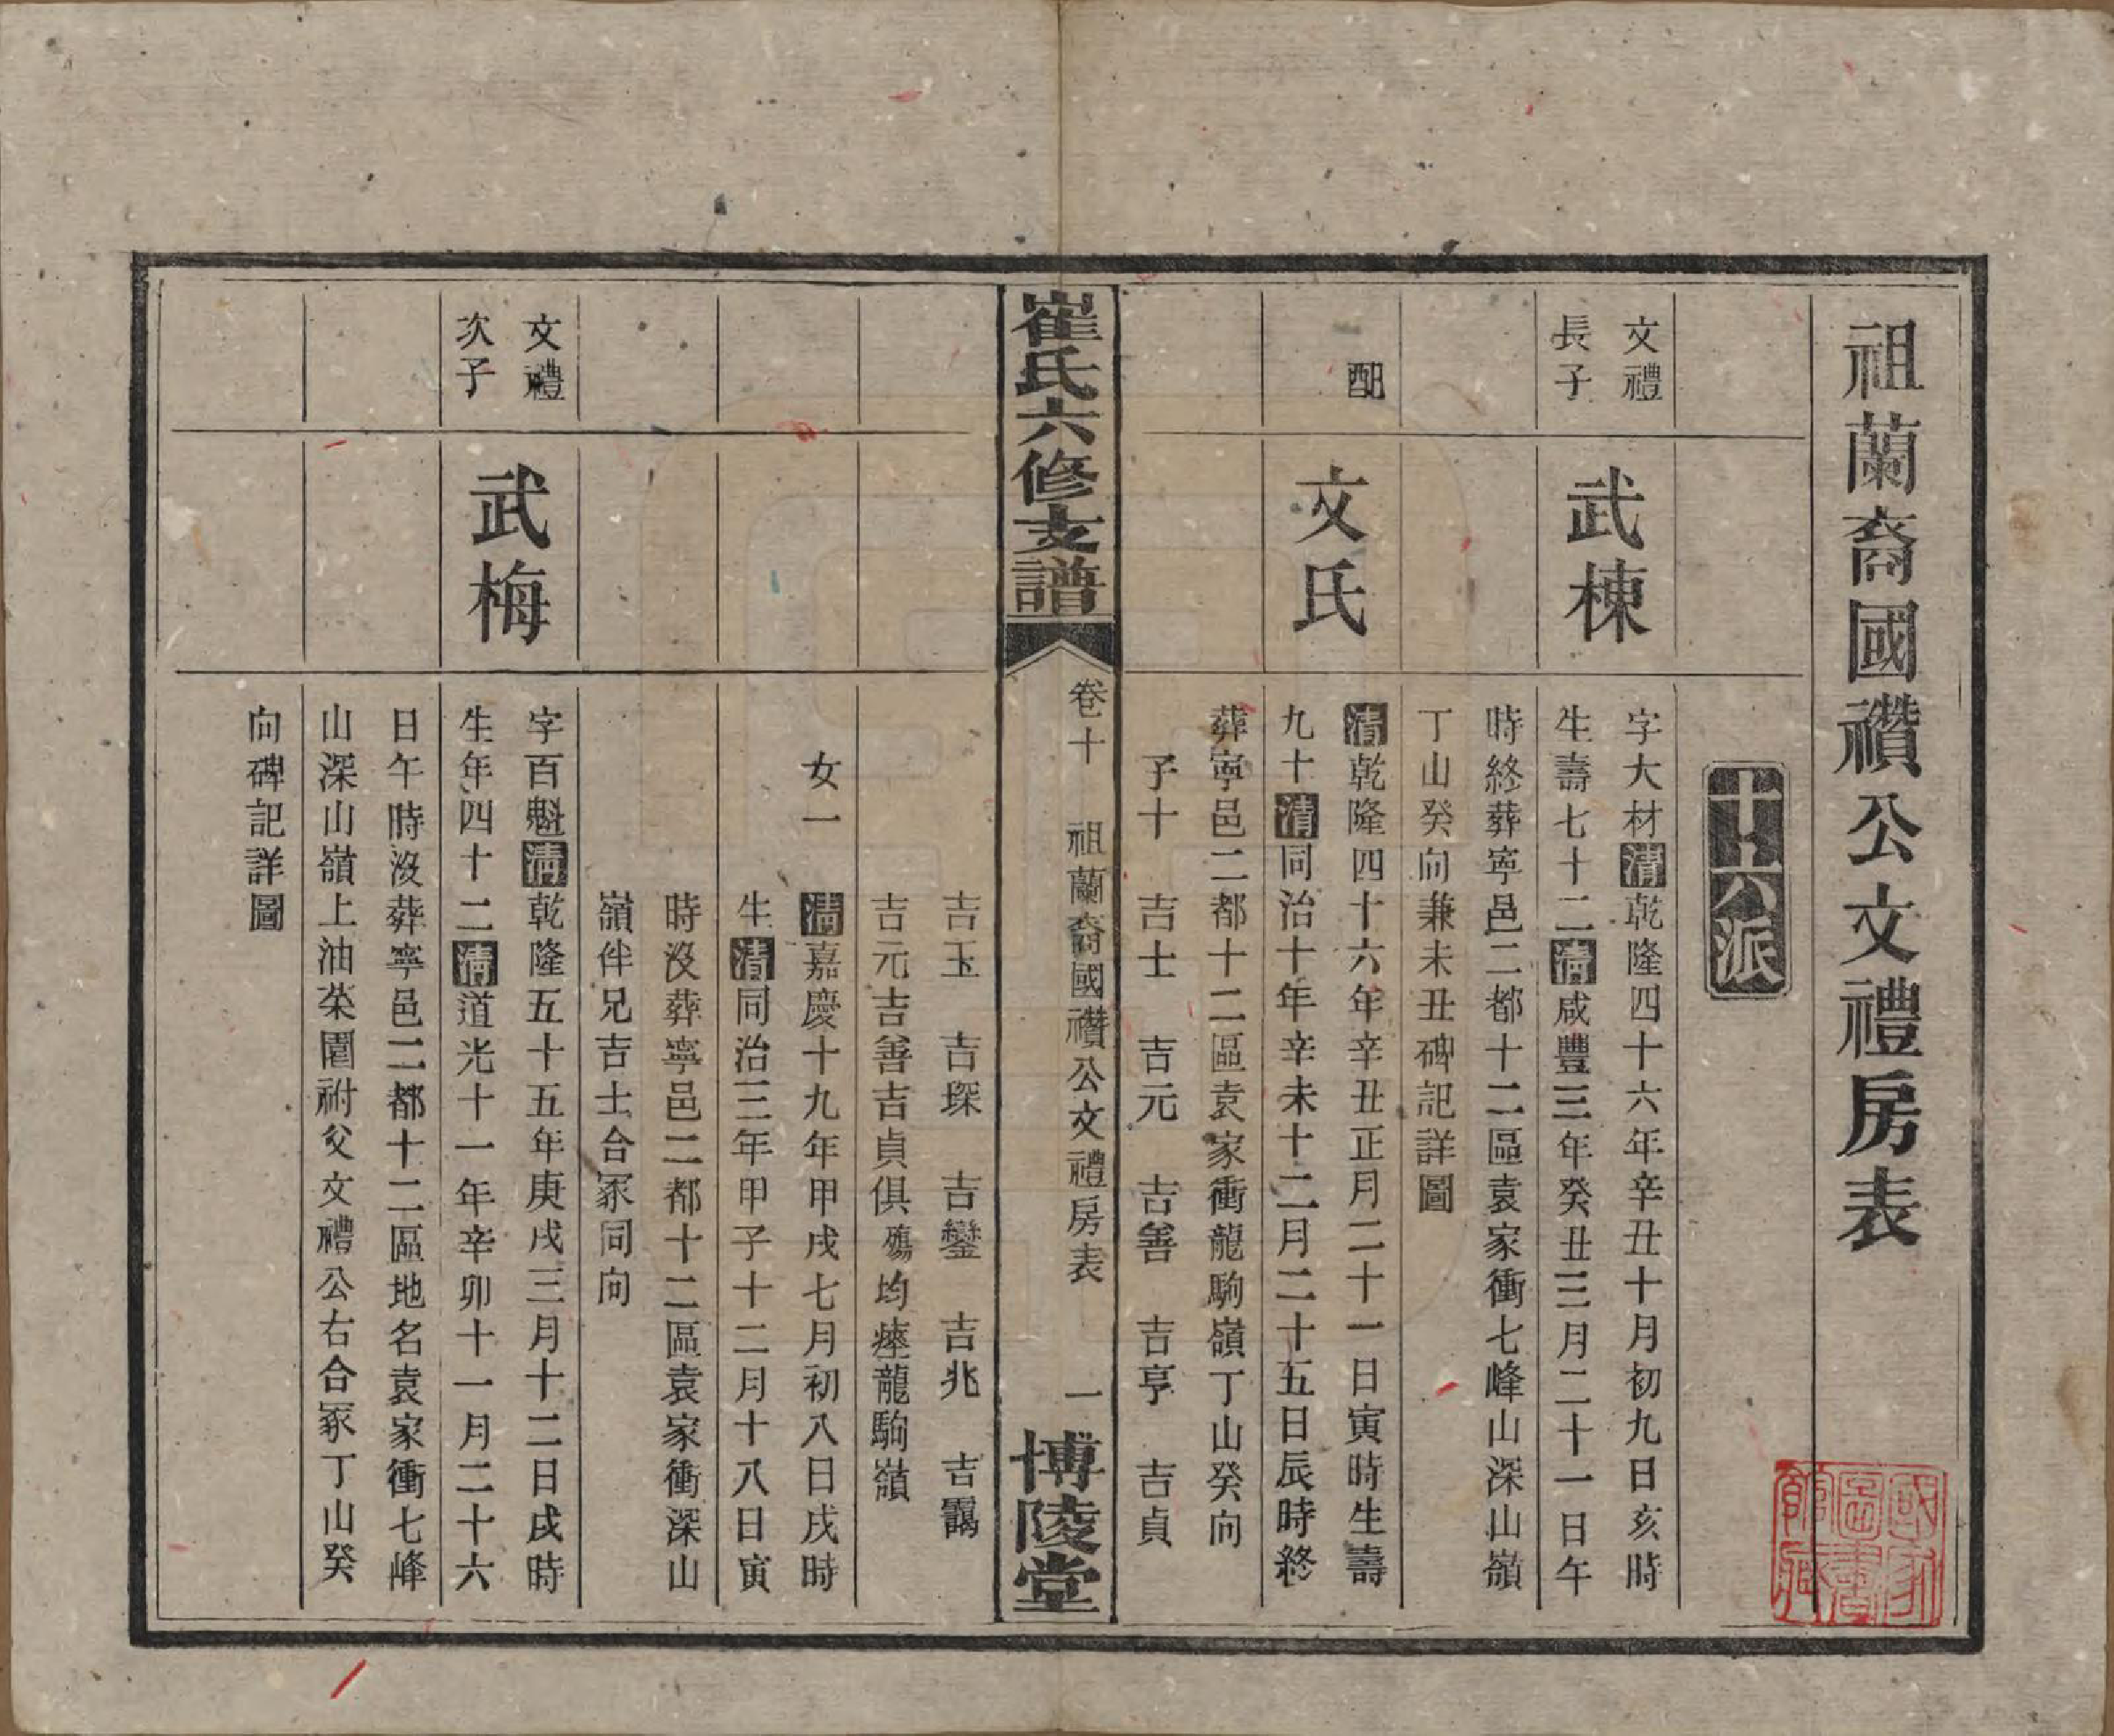 祖蘭裔國禶公文禮房表
十六派
文禮
長子
武棟
字大材清乾隆四十六年辛丑十月初九日亥時
生壽七十二清咸豐三年癸丑三月二十一日午
時終葬寧邑二都十二區袁家衝七峰山深山嶺
丁山癸向兼未丑碑記詳圖
配
文氏
清乾隆四十六年辛丑正月二十一日寅時生壽
九十清同治十年辛未十二月二十五日辰時終
葬寧邑二都十二區袁家衝龍駒嶺丁山癸向
子十 吉士 吉元 吉善 吉亨 吉貞
崔氏六修支譜
卷十 祖蘭裔國禶公文禮房表 一
博陵堂
吉玉 吉琛 吉鑾 吉兆 吉靄
吉元吉善吉貞俱殤均瘞龍駒嶺
女一 清嘉慶十九年甲戌七月初八日戌時
生清同治三年甲子十二月十八日寅
時沒葬寧邑二都十二區袁家衝深山
嶺伴兄吉士合冢同向
文禮
次子
武梅
字百魁清乾隆五十五年庚戌三月十二日戌時
生年四十二清道光十一年辛卯十一月二十六
日午時沒葬寧邑二都十二區地名袁家衝七峰
山深山嶺上油茶園祔父文禮公右合冢丁山癸
向碑記詳圖
國家
圖書
館藏